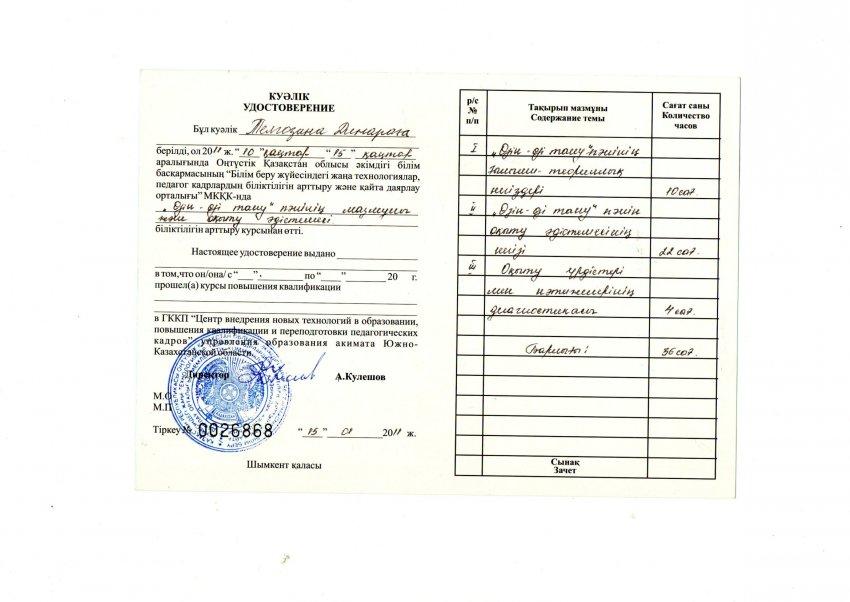 КУӘЛІК
УДОСТОВЕРЕНИЕ
Бұл куәлік Телгозина Динараға
берілді, ол 2011 ж. “ 10 ” қаңтар “ 15 ” қаңтар
аралығында Оңтүстік Қазақстан облысы әкімдігі білім
басқармасының “Білім беру жүйесіндегі жаңа технологиялар,
педагог кадрлардың біліктілігін арттыру және қайта даярлау
орталығы” МКҚК-нда
„Өзін-өзі тану“ пәнінің мазмұны
және оқыту әдістемесі
біліктілігін арттыру курсынан өтті.
Настоящее удостоверение выдано
в том,что он/она/ с “ ” по “ ” 20 г.
прошел(а) курсы повышения квалификации
в ГККП “Центр внедрения новых технологий в образовании,
повышения квалификации и переподготовки педагогических
кадров” управления образования акимата Южно-
Казахстанской области.
Директор А.Кулешов
М.О
М.П
Тіркеу № 0026868 “ 15 ” 01 2011 ж.
Шымкент қаласы
р/с № п/п Тақырып мазмұны Содержание темы Сағат саны Количество часов
I „Өзін-өзі тану“ пәнінің
ғылыми-теориялық
негіздері 10 сағ.
II „Өзін-өзі тану“ пәнін
оқыту әдістемесінің
негізі 22 сағ.
III Оқыту үрдістері
мен нәтижелерінің
диагностикасы 4 сағ.
Барлығы: 36 сағ.
Сынақ
Зачет